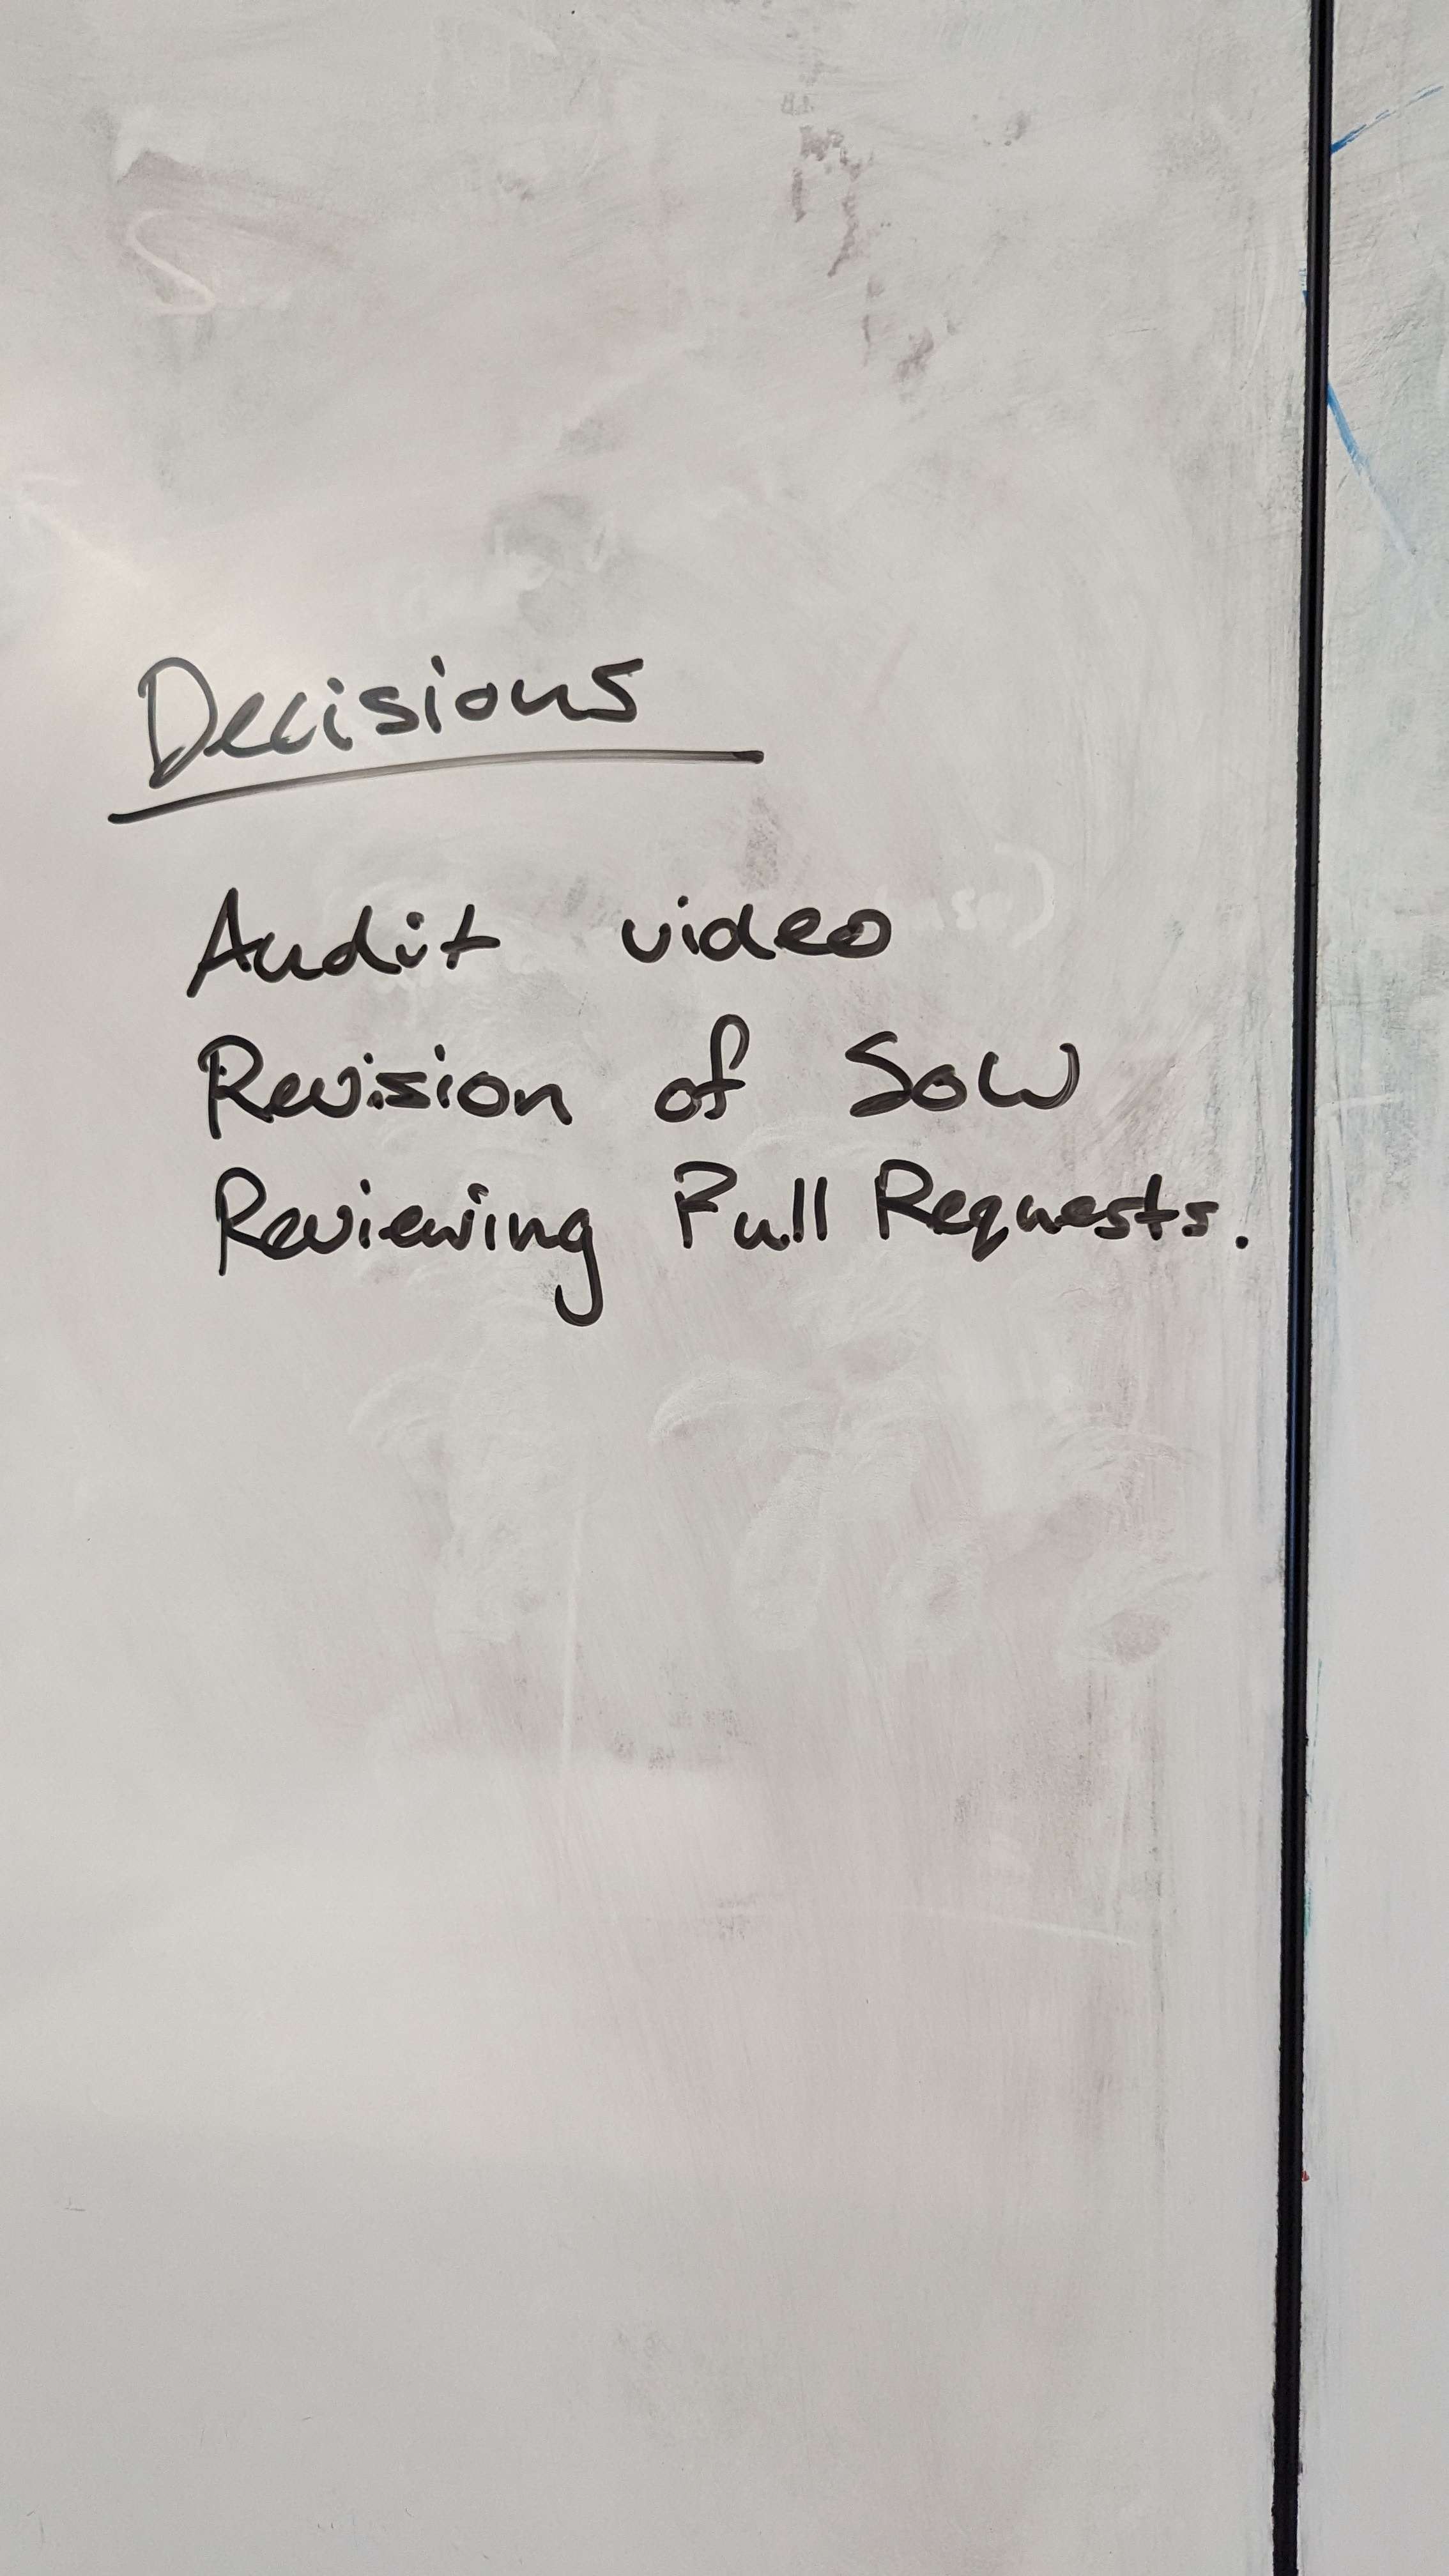 Decisions
Audit video
Revision of SoW
Reviewing Pull Requests.